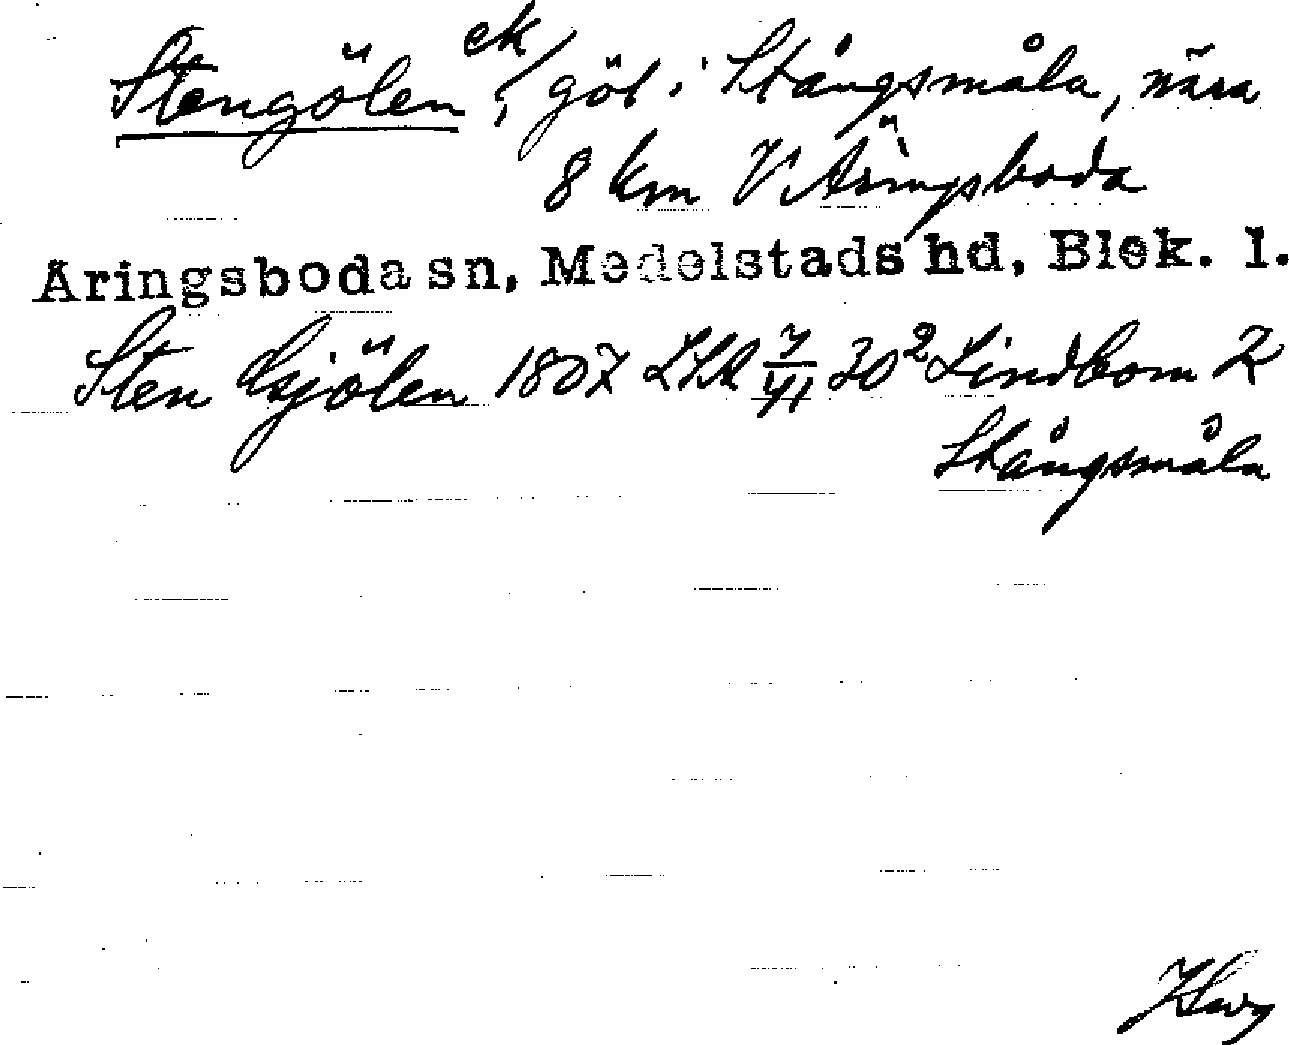 Stengölen ek/, göl i Stångsmåla, nära
8 km V Äringsboda
Äringsboda sn, Medelstads hd, Blek. l.
Sten Gsjölen 1807 LSA 7/VI 30² Lindbom K
Stångsmåla